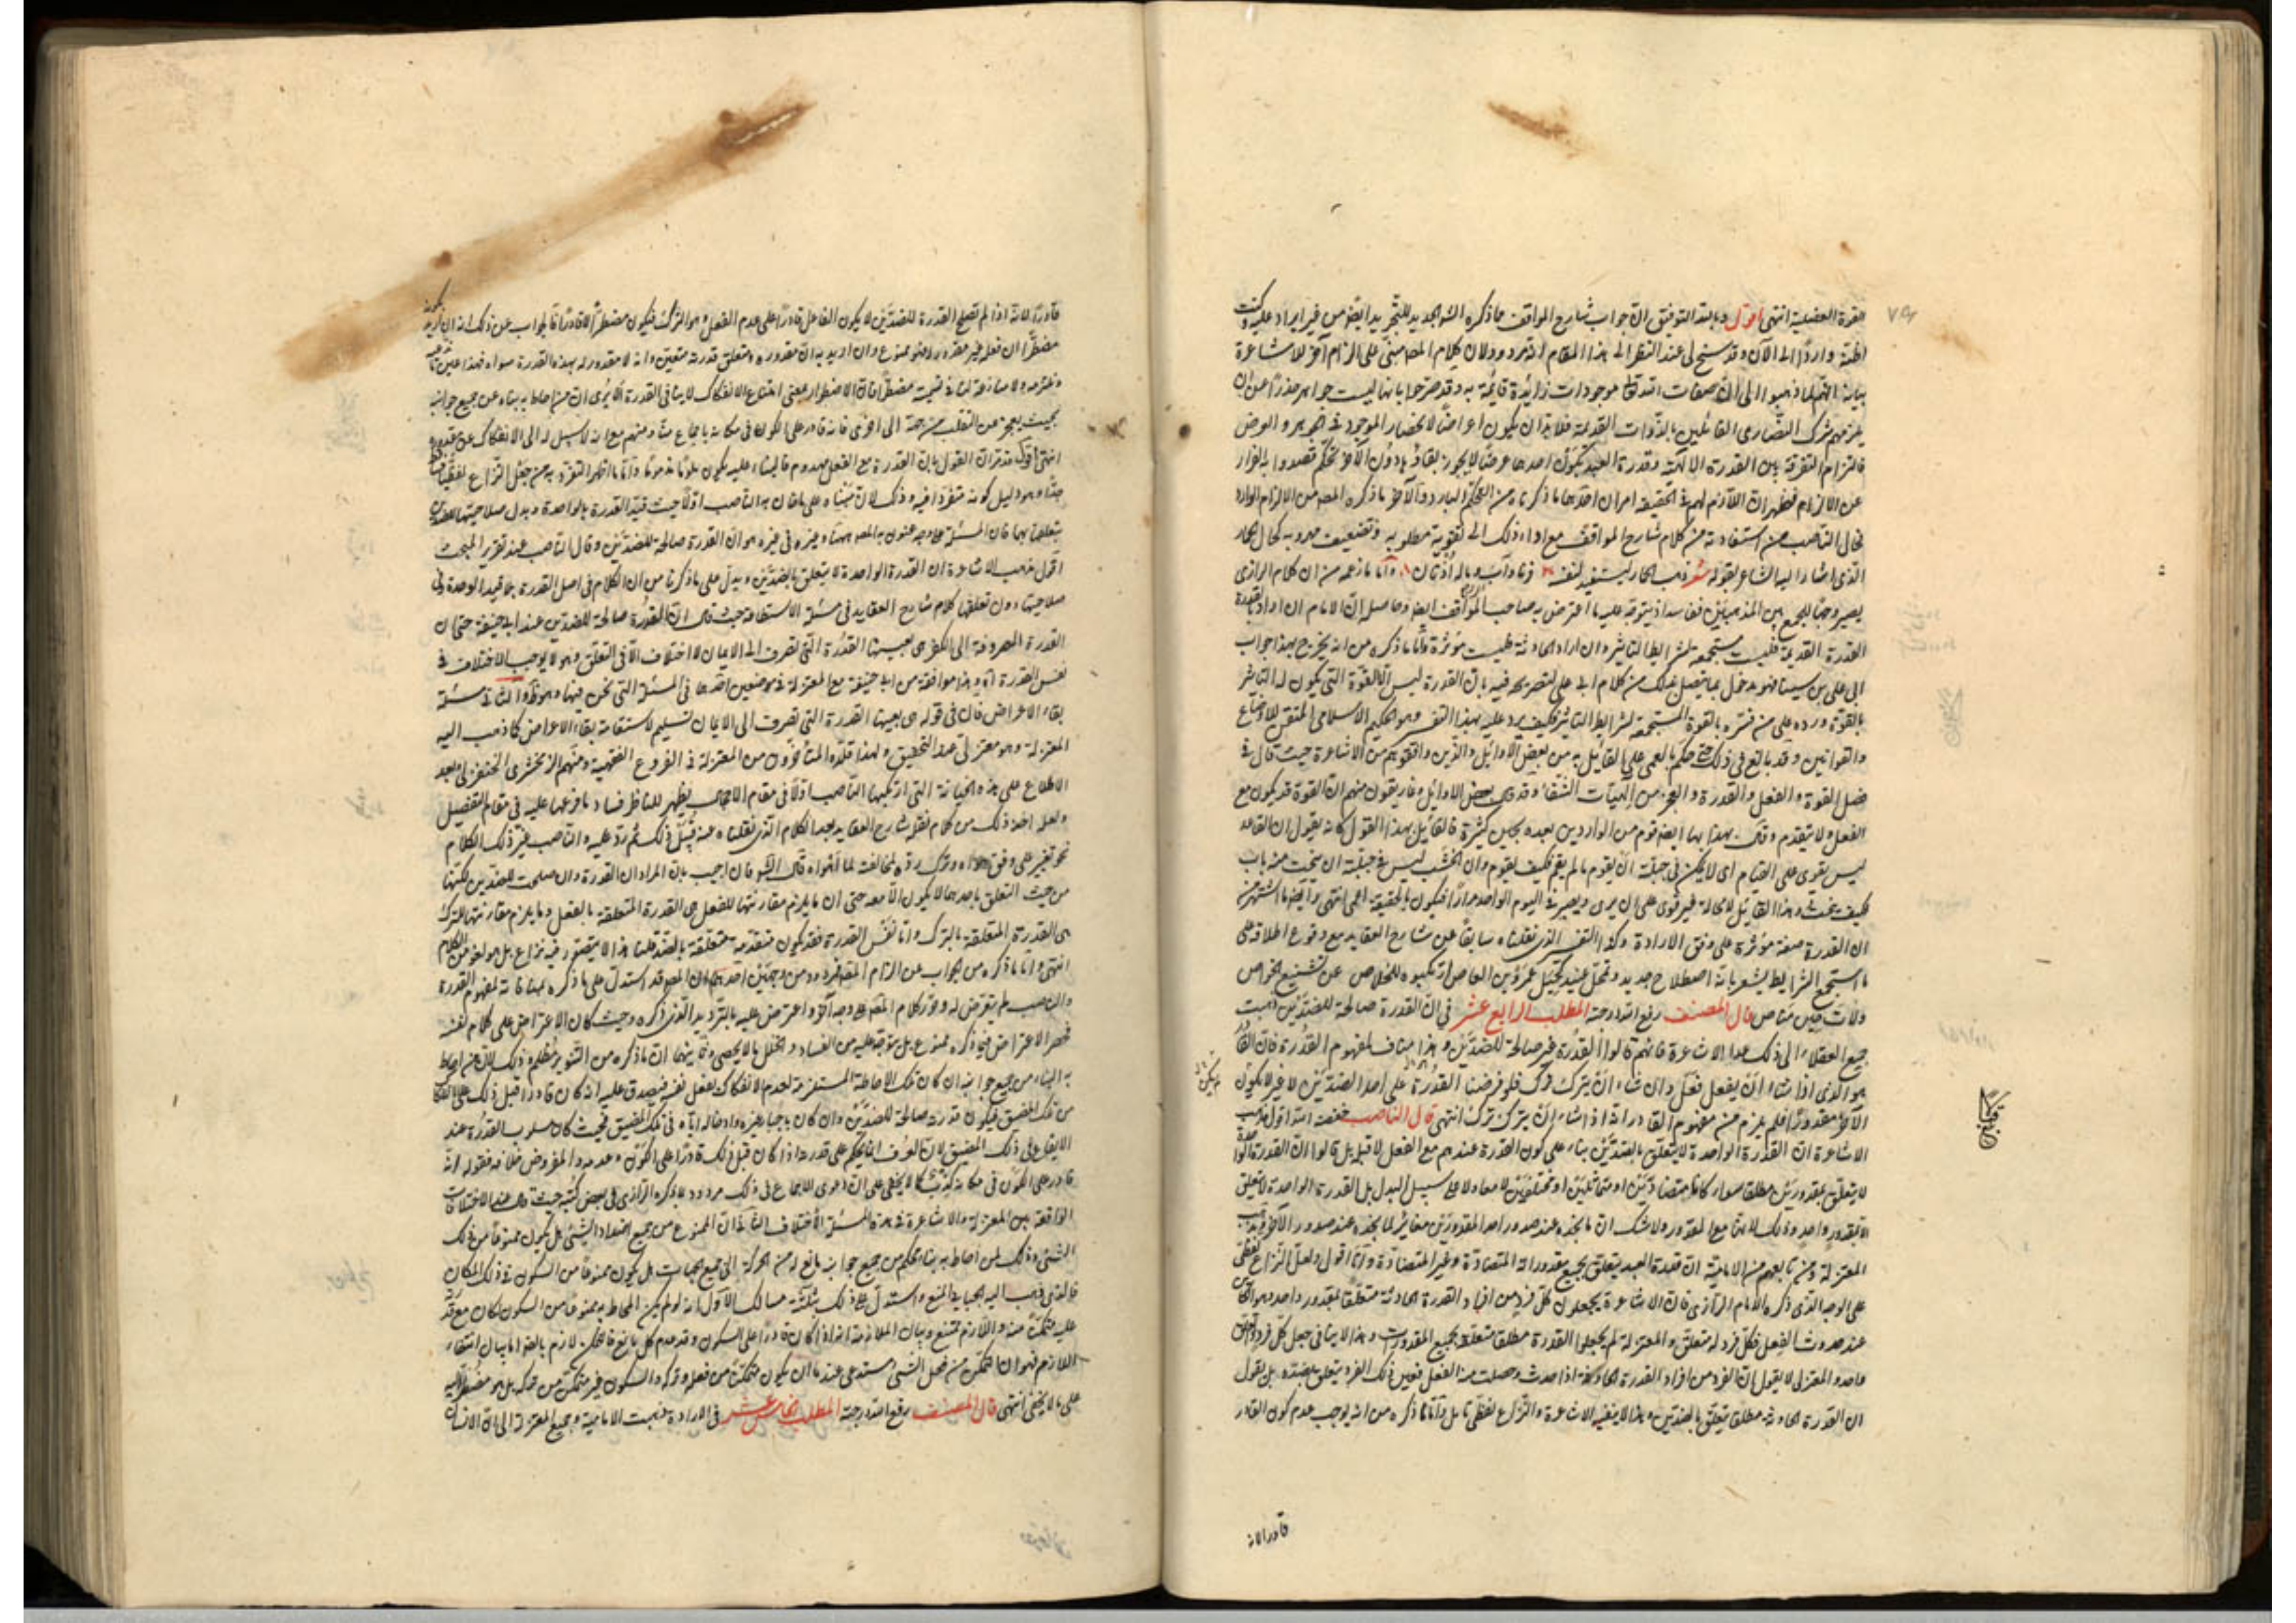 القوة العضلية انتهى اقول وبالله التوفيق ان جواب شارح المواقف مما ذكره الشارح الجديد للتجريد ايضا من غير ايراد عليه وكنت
اظنه واردا الى الآن وقد سنح لي عند النظر الى هذا المقام انه مردود لان كلام المصنف مبني على الزام آخر للاشاعرة
بيانه انهم لما ذهبوا الى ان صفات الله تعالى موجودات زائدة قائمة به وقد صرحوا بانها ليست جواهر حذرا عن ان
يلزمهم شرك النصارى القائلين بالذوات القديمة فلا بد ان يكون اعراضا لانحصار الموجود في الجوهر والعرض
فالتزام التفرقة بين القدرة الالهية وقدرة العبد بكون احدهما عرضا لا يجوز بقاؤه دون الآخر تحكم قصدوا به الفرار
عن الالزام فظهر ان اللازم لهم في الحقيقة امران احدهما ما ذكرناه من التحكم البارد والآخر ما ذكره المصنف من الالزام الوارد
فحال الناصب من استفادته من كلام شارح المواقف مع اداء ذلك الى تقوية مطلوبه وتضعيف مهربه كحال الحمار
الذي اشار اليه الشاعر بقوله شعر ذهب الحمار ليستفيد لنفسه قرنا وآب وماله اذنان واما ما زعمه من ان كلام الرازي
يصير وجها للجمع بين المذهبين ففاسد اذ يتوجه عليه ما اعترض به صاحب المواقف ايضا وحاصله ان الامام ان اراد بالقدرة
القدرة القديمة فليست مستجمعة لشرائط التاثير وان اراد الحادثة فليست مؤثرة واما ما ذكره من انه يخرج بهذا جواب
ابي علي بن سينا فهو مدخول بما يفصل عنك من كلام ابي علي لتصريحه فيه بان القدرة ليس الا القوة التي يكون له التاثير
بالقوة ورده على من فسره بالقوة المستجمعة لشرائط التاثير فكيف يرد عليه بهذا التفسير وهو الحكيم الاسلامي المتقن للاوضاع
والقوانين وقد بالغ في ذلك حتى حكم بالعمى على القائل به من بعض الاوائل والذين وافقوهم من الاشاعرة حيث قال في
فصل القوة والفعل والقدرة والعجز من الهيات الشفاء وقد قال بعض الاوائل وغاريقون منهم ان القوة قد يكون مع
الفعل ولا يتقدم وقال بهذا ايضا قوم من الواردين بعده بحين كثيرة فالقائل بهذا القول كانه يقول ان القاعد
ليس يقوى على القيام اي لا يمكن في جبلته ان يقوم ما لم يقم فكيف يقوم وان الخشب ليس في جبلته ان ينحت منه باب
فكيف ينحت وهذا القائل لا محالة غير قوي على ان يرى ويبصر في اليوم الواحد مرارا فيكون بالحقيقة اعمى انتهى وايضا ما اشتهر من
ان القدرة صفة مؤثرة على وفق الارادة وكذا التفسير الذي نقلناه سابقا عن شارح العقايد مع وقوع اطلاقه على
ما استجمع الشرايط يشعر بانه اصطلاح جديد وتمحل عنيد كحيل عمرو بن العاص ارتكبوه للخلاص عن تشنيع الخواص
ولات حين مناص قال المصنف رفع الله درجته المطلب الرابع عشر في ان القدرة صالحة للضدين ذهبت
جميع العقلاء الى ذلك عدا الاشاعرة فانهم قالوا القدرة غير صالحة للضدين وهذا مناف لمفهوم القدرة فان القادر
هو الذي اذا شاء ان يفعل فعل وان شاء ان يترك ترك فلو فرضنا القدرة على احد الضدين لا غير لا يكون
الآخر مقدورا فلم يلزم من مفهوم القادر انه اذا شاء ان يترك ترك انتهى قال الناصب خفضه الله اقول مذهب
الاشاعرة ان القدرة الواحدة لا يتعلق بالضدين بناء على كون القدرة عندهم مع الفعل لا قبله بل قالوا ان القدرة الواحدة
لا يتعلق بمقدورين مطلقا سواء كانا متضادين او متماثلين او مختلفين لا معا ولا على سبيل البدل بل القدرة الواحدة لا يتعلق
الا بمقدور واحد وذلك لانها مع المقدور ولا شك ان ما نجده عند صدور احد المقدورين مغاير لما نجده عند صدور الآخر ومذهب
المعتزلة ومن تابعهم من الامامية ان قدرة العبد يتعلق بجميع مقدوراته المتضادة وغير المتضادة وانا اقول ولعل النزاع لفظي
على الوجه الذي ذكره الامام الرازي فان الاشاعرة يجعلون كل فرد من افراد القدرة الحادثة متعلقا بمقدور واحد وهو الكائن
عند حدوث الفعل فكل فرد له متعلق والمعتزلة لم يجعلوا القدرة مطلقا متعلقة بجميع المقدورات وهذا لا ينافي جعل كل فرد متعلق
واحد والمعتزلي لا يقول ان الفرد من افراد القدرة الحادثة اذا حدث وحصلت منه الفعل فعين ذلك الفرد يتعلق بضده بل يقول
ان القدرة الحادثة مطلقا يتعلق بالضدين وهذا لا ينفيه الاشاعرة والنزاع لفظي تامل واما ما ذكره من انه يوجب عدم كون القادر
قادرا لانه
قادرا لانه اذا لم تصلح القدرة للضدين لا يكون الفاعل قادرا على عدم الفعل وهو الترك فيكون مضطرا لا قادرا فالجواب عن ذلك انه ان اريد بكونه
مضطرا ان فعله غير مقدور له فهو ممنوع وان اريد به ان مقدوره ومتعلق قدرته متعين وانه لا مقدور له بهذه القدرة سواه فهذا عين ما ندعيه
ونلتزمه ولا منازعة لنا في تسميته مضطرا فان الاضطرار بمعنى امتناع الانفكاك لا ينافي القدرة الا يرى ان من احاط به بناء من جميع جوانبه
بحيث يعجز عن التقلب من جهة الى اخرى فانه قادر على الكون في مكانه باجماع منا ومنهم مع انه لا سبيل له الى الانفكاك عن مقدوره
انتهى اقول قد مر ان القول بان القدرة مع الفعل مهدوم فالبناء عليه يكون ملوما مذموما واما ما اظهر التفرد به من جعل النزاع لفظيا
جدا وهو دليل كونه متفردا فيه وذلك لان مبناه على ما قال به الناصب اولا حيث قيد القدرة بالواحدة وبدل صلاحيتها للضدين
بتعلقها بهما فان المسئلة على وجه عنون به المصنف ههنا وغيره في غيره هو ان القدرة صالحة للضدين وقال الناصب عند تقرير المبحث
اقول مذهب الاشاعرة ان القدرة الواحدة لا يتعلق بالضدين ويدل على ما ذكرنا من ان الكلام في اصل القدرة بلا قيد الوحدة وفي
صلاحيتها دون تعلقها كلام شارح العقايد في مسئلة الاستطاعة حيث قال ان القدرة صالحة للضدين عند ابي حنيفة حتى ان
القدرة المصروفة الى الكفر هي بعينها القدرة التي تصرف الى الايمان لا اختلاف الا في التعلق وهو لا يوجب الاختلاف في
نفس القدرة آه وهذا موافقة من ابي حنيفة مع المعتزلة في موضعين احدهما في المسئلة التي نحن فيها وهو ظ والثاني مسئلة
بقاء الاعراض فان في قوله هي بعينها القدرة التي تصرف الى الايمان تسليم لاستقامة بقاء الاعراض كما ذهب اليه
المعتزلة وهو معتزلي عند التحقيق ولهذا قلده المتأخرون من المعتزلة في الفروع الفقهية ومنهم الزمخشري الحنفي وبعد
الاطلاع على هذه الخيانة التي ارتكبها الناصب اولا في مقام الاجمال يظهر للناظر فساد ما فرعها عليه في مقام التفصيل
ولعله اخذ ذلك من كلام نقله شارح العقايد بعد الكلام الذي نقلناه عنه قبيل ذلك ثم رد عليه والناصب غير ذلك الكلام
نحو تغيير على وفق هواه وترك رده لمخالفته لما اهواه قال الش فان اجيب بان المراد ان القدرة وان صلحت للضدين لكنها
من حيث التعلق باحدهما لا يكون الا معه حتى ان ما يلزم مقارنتها للفعل هي القدرة المتعلقة بالفعل وما يلزم مقارنتها للترك
هي القدرة المتعلقة بالترك واما نفس القدرة فقد يكون متقدمة متعلقة بالضدين قلنا هذا مما لا يتصور فيه نزاع بل هو لغو من الكلام
انتهى واما ما ذكره من الجواب عن الزام المصنف فمردود من وجهين احدهما ان المصنف قد استدل على ما ذكره بمنافاته لمفهوم القدرة
والناصب لم يتعرض له وقرر كلام المصنف على وجه آخر واعترض عليه بالترديد الذي ذكره وحيث كان الاعتراض على كلام نفسه
فحصر الاعتراض فيما ذكره ممنوع بل يتوجه عليه من الفساد والخلل ما لا يحصى وثانيهما ان ما ذكره من التنوير مظلم وذلك لان من احاط
به البناء من جميع جوانبه ان كان تلك الاحاطة المستلزمة لعدم الانفكاك بفعل نفسه فيصدق عليه انه كان قادرا قبل ذلك على الانفكاك
من تلك المضيق فيكون قدرته صالحة للضدين وان كان باجبار غيره وادخاله اياه في تلك المضيق فحيث كان مسلوب القدرة عند
الايقاع في ذلك المضيق لان العرف انما يحكم على قدرته اذا كان قبل ذلك قادرا على الكون وعدمه والمفروض خلافه فقوله انه
قادر على الكون في مكانه كذب كما لا يخفى على ان دعوى الاجماع في ذلك مردود بما ذكره الرازي في بعض كتبه حيث قال عند الاختلافات
الواقعة بين المعتزلة والاشاعرة في هذه المسئلة الاختلاف الثاني ان الممنوع من جميع اضداد الشيء هل يكون ممنوعا من ذلك
الشيء وذلك كمن احاط به بناء محكم من جميع جوانبه مانع له من الحركة الى جميع الجهات هل يكون ممنوعا من السكون في ذلك المكان
فالذي ذهب اليه الجبايي المنع واستدل على ذلك بثلثة مسالك الاول انه لو لم يكن المحاط به ممنوعا من السكون لكان مع قدرته
عليه متمكنا منه واللازم ممتنع وبيان الملازمة انه اذا كان قادرا على السكون وقد عدم كل مانع فالتمكن لازم بالضرورة اما بيان انتفاء
اللازم فهو ان التمكن من فعل الشيء مستدعي عندنا ان يكون متمكنا من فعله وتركه والسكون غير متمكن من تركه بل هو مضطر اليه
على ما لا يخفى انتهى قال المصنف رفع الله درجته المطلب الخامس عشر في الارادة ذهبت الامامية وجميع المعتزلة الى ان الانسان